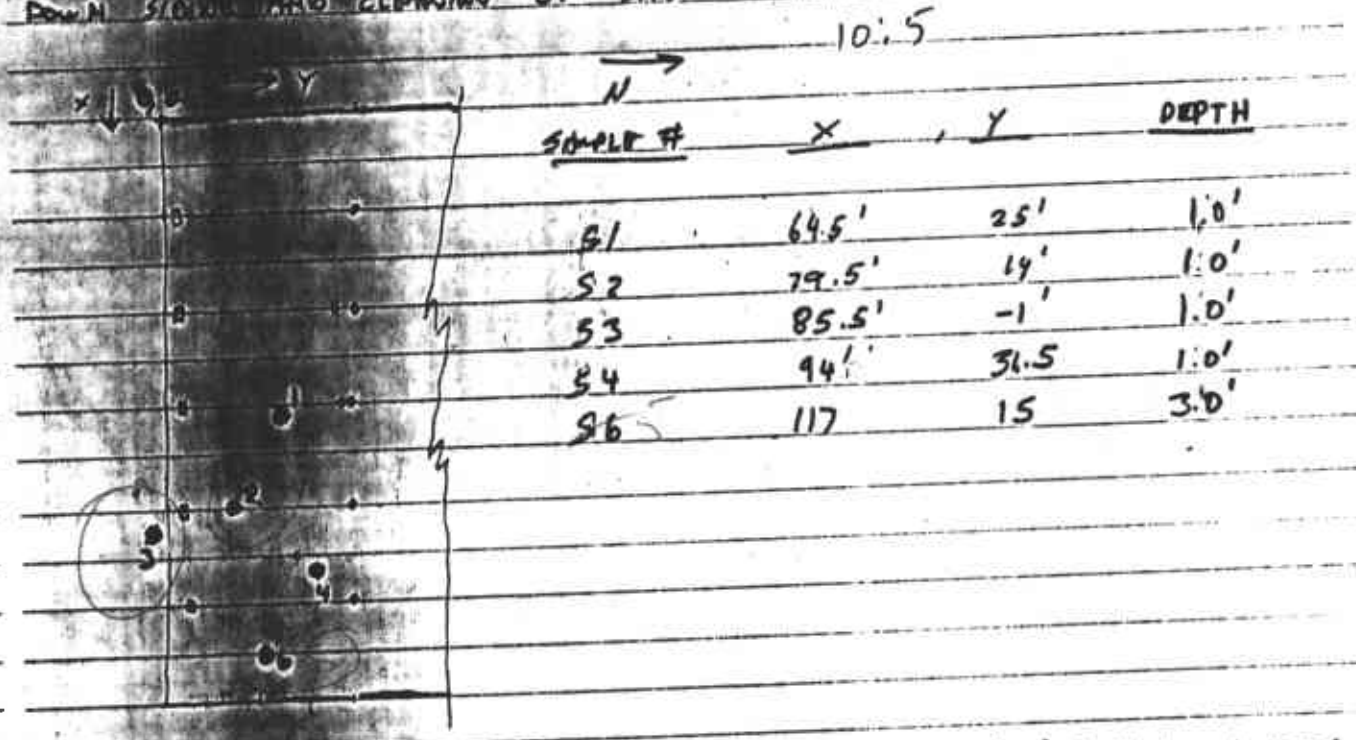 DOWN
10:5
X Y
N
SAMPLE # X , Y DEPTH
S1 64.5' 25' 1.0'
S2 79.5' 14' 1.0'
S3 85.5' -1' 1.0'
S4 94' 36.5 1.0'
S6 117 15 3.0'
1
2
3
4
6